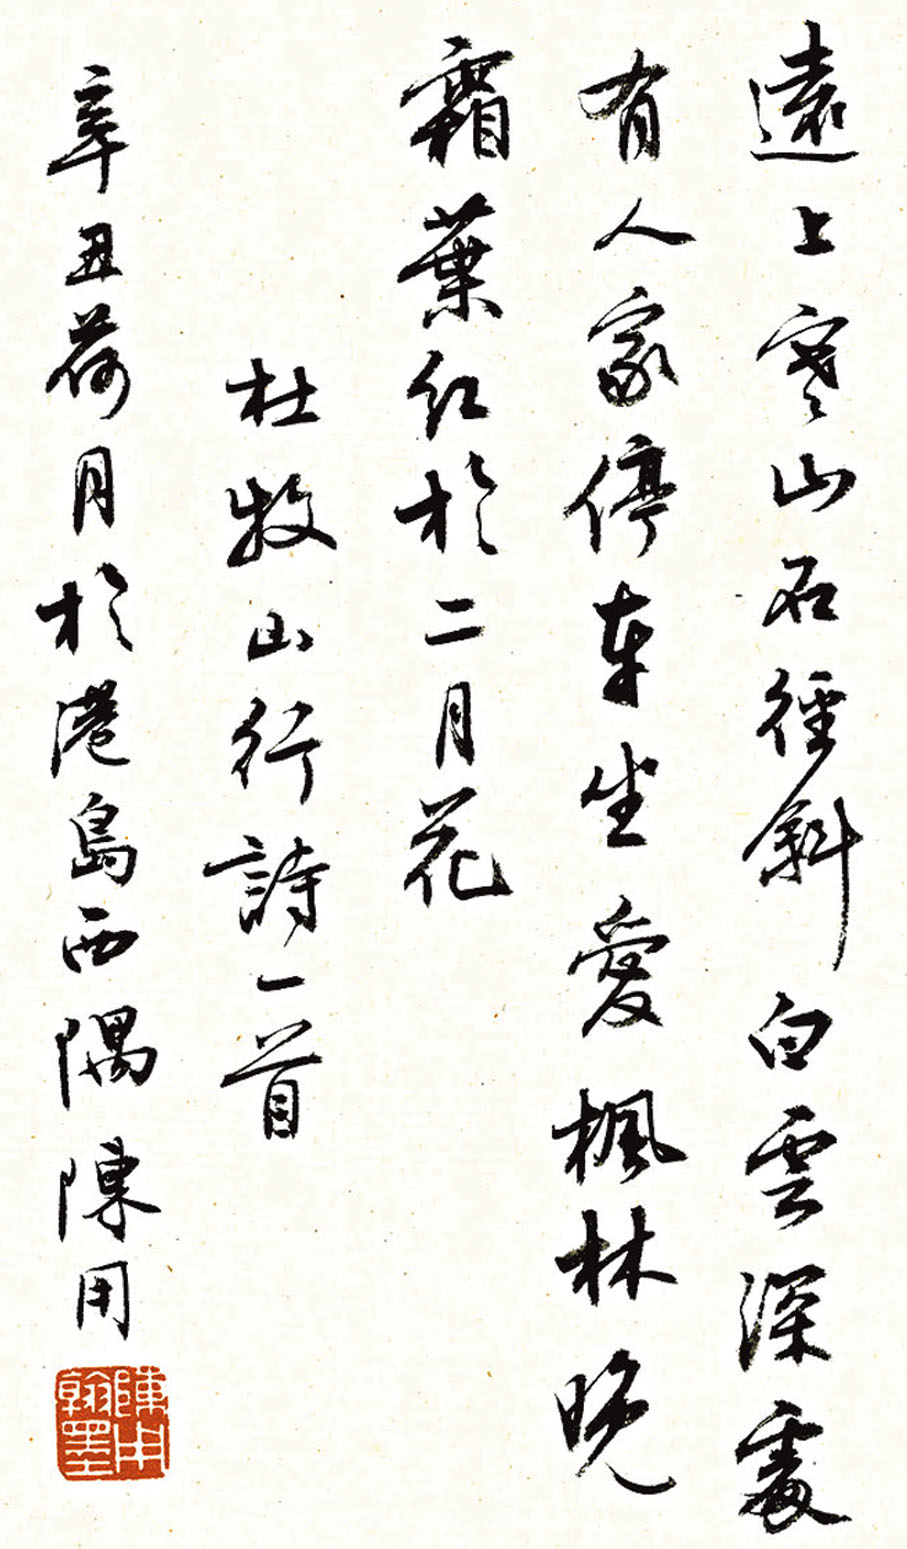 遠上寒山石徑斜白雲深處
有人家停車坐愛楓林晚
霜葉紅於二月花
杜牧山行詩一首
辛丑荷月於港島西隅陳用
陳用翰墨